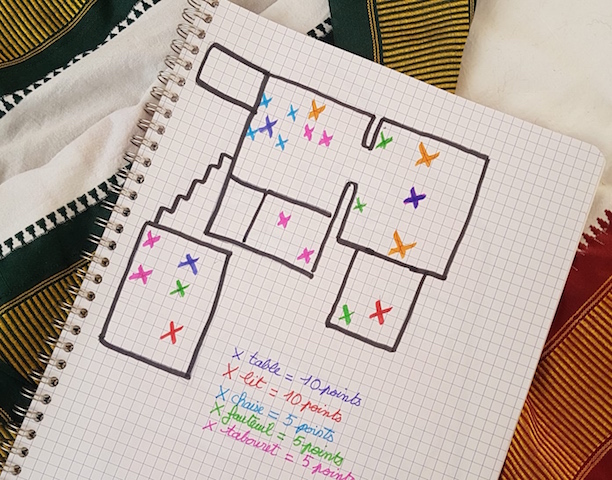 X table = 10 points
X lit = 10 points
X chaise = 5 points
X fauteuil = 5 points
X tabouret = 5 points